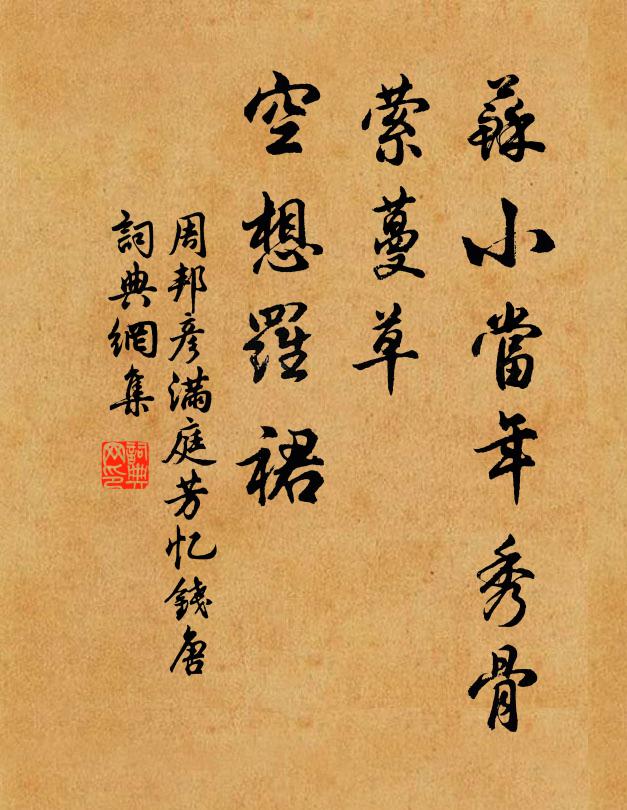 蘇小當年秀骨
萦蔓草
空想羅裙
周邦彦滿庭芳忆錢唐
詞典網集
詞典網印